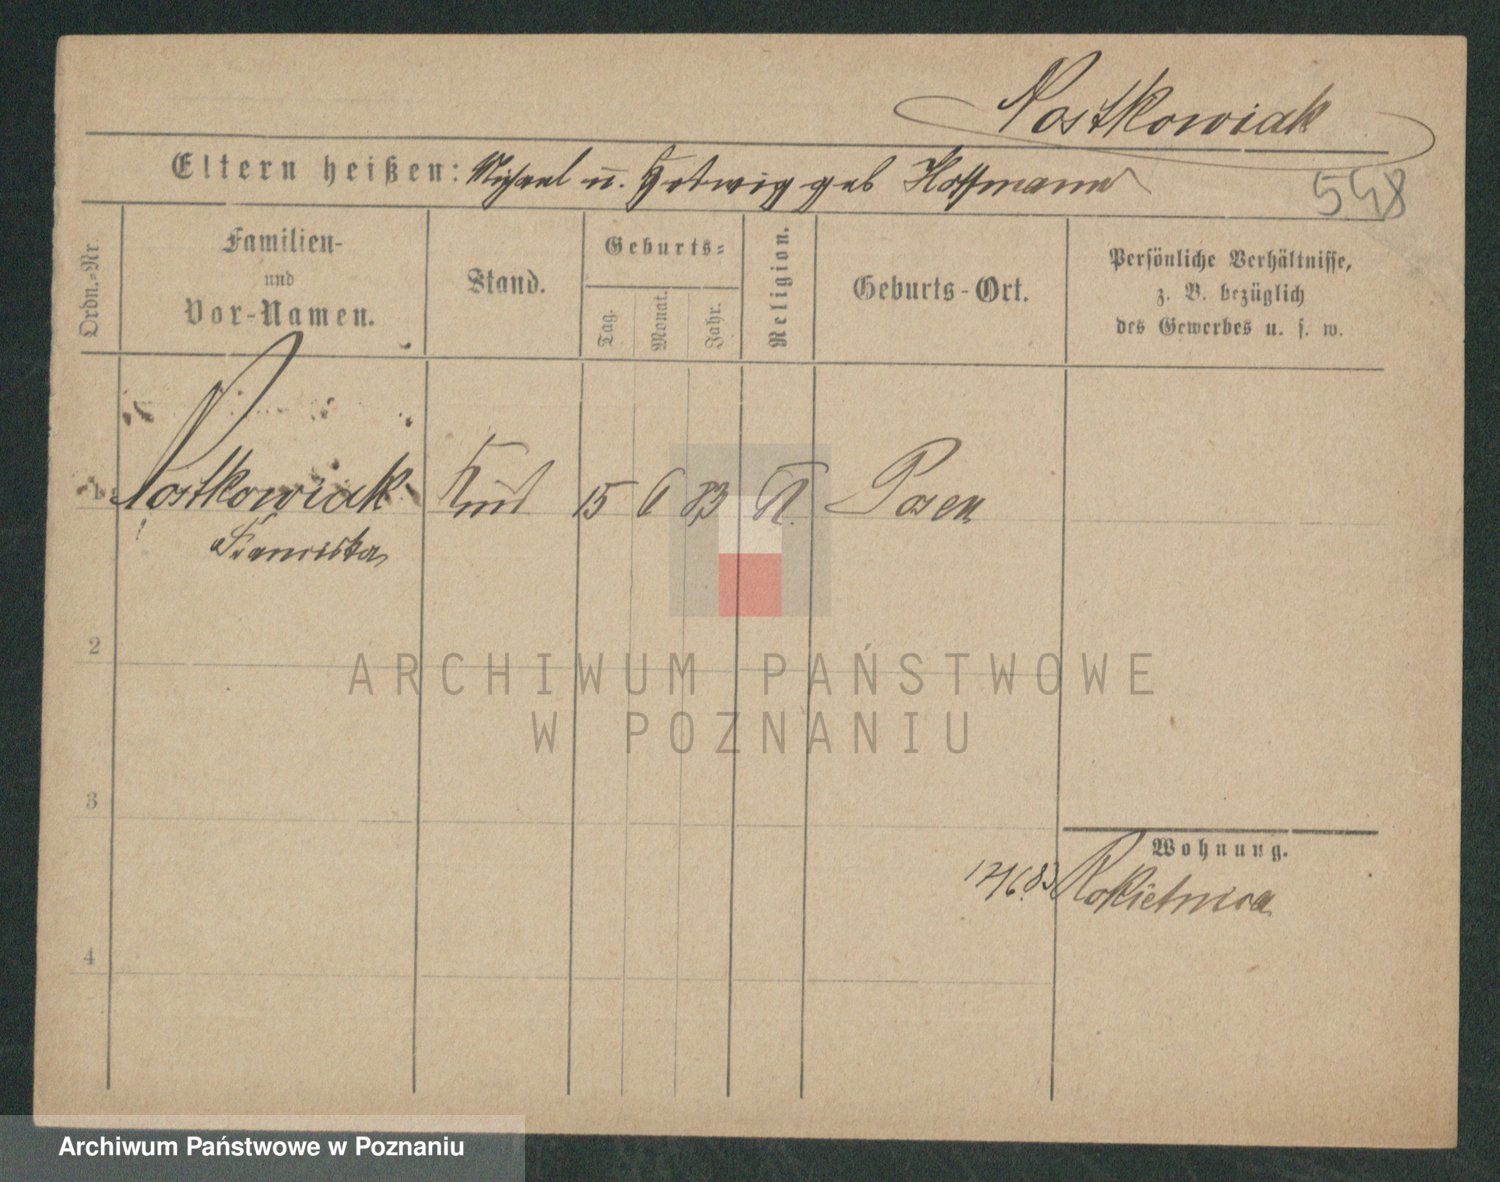 Nostkowiak
Eltern heißen: Michael u. Hedwig geb Hoffmann
548
Ordn.-Nr.
Familien-
und
Vor-Namen.
Stand.
Geburts-
Tag.
Monat.
Jahr.
Religion.
Geburts-Ort.
Persönliche Verhältnisse,
z. B. bezüglich
des Gewerbes u. s. w.
1 Nostkowiak Kind 15 6 83 K. Posen
Franciska
2
ARCHIWUM PAŃSTWOWE
W POZNANIU
3
Wohnung.
17/6 83 Rokietnica
4
Archiwum Państwowe w Poznaniu